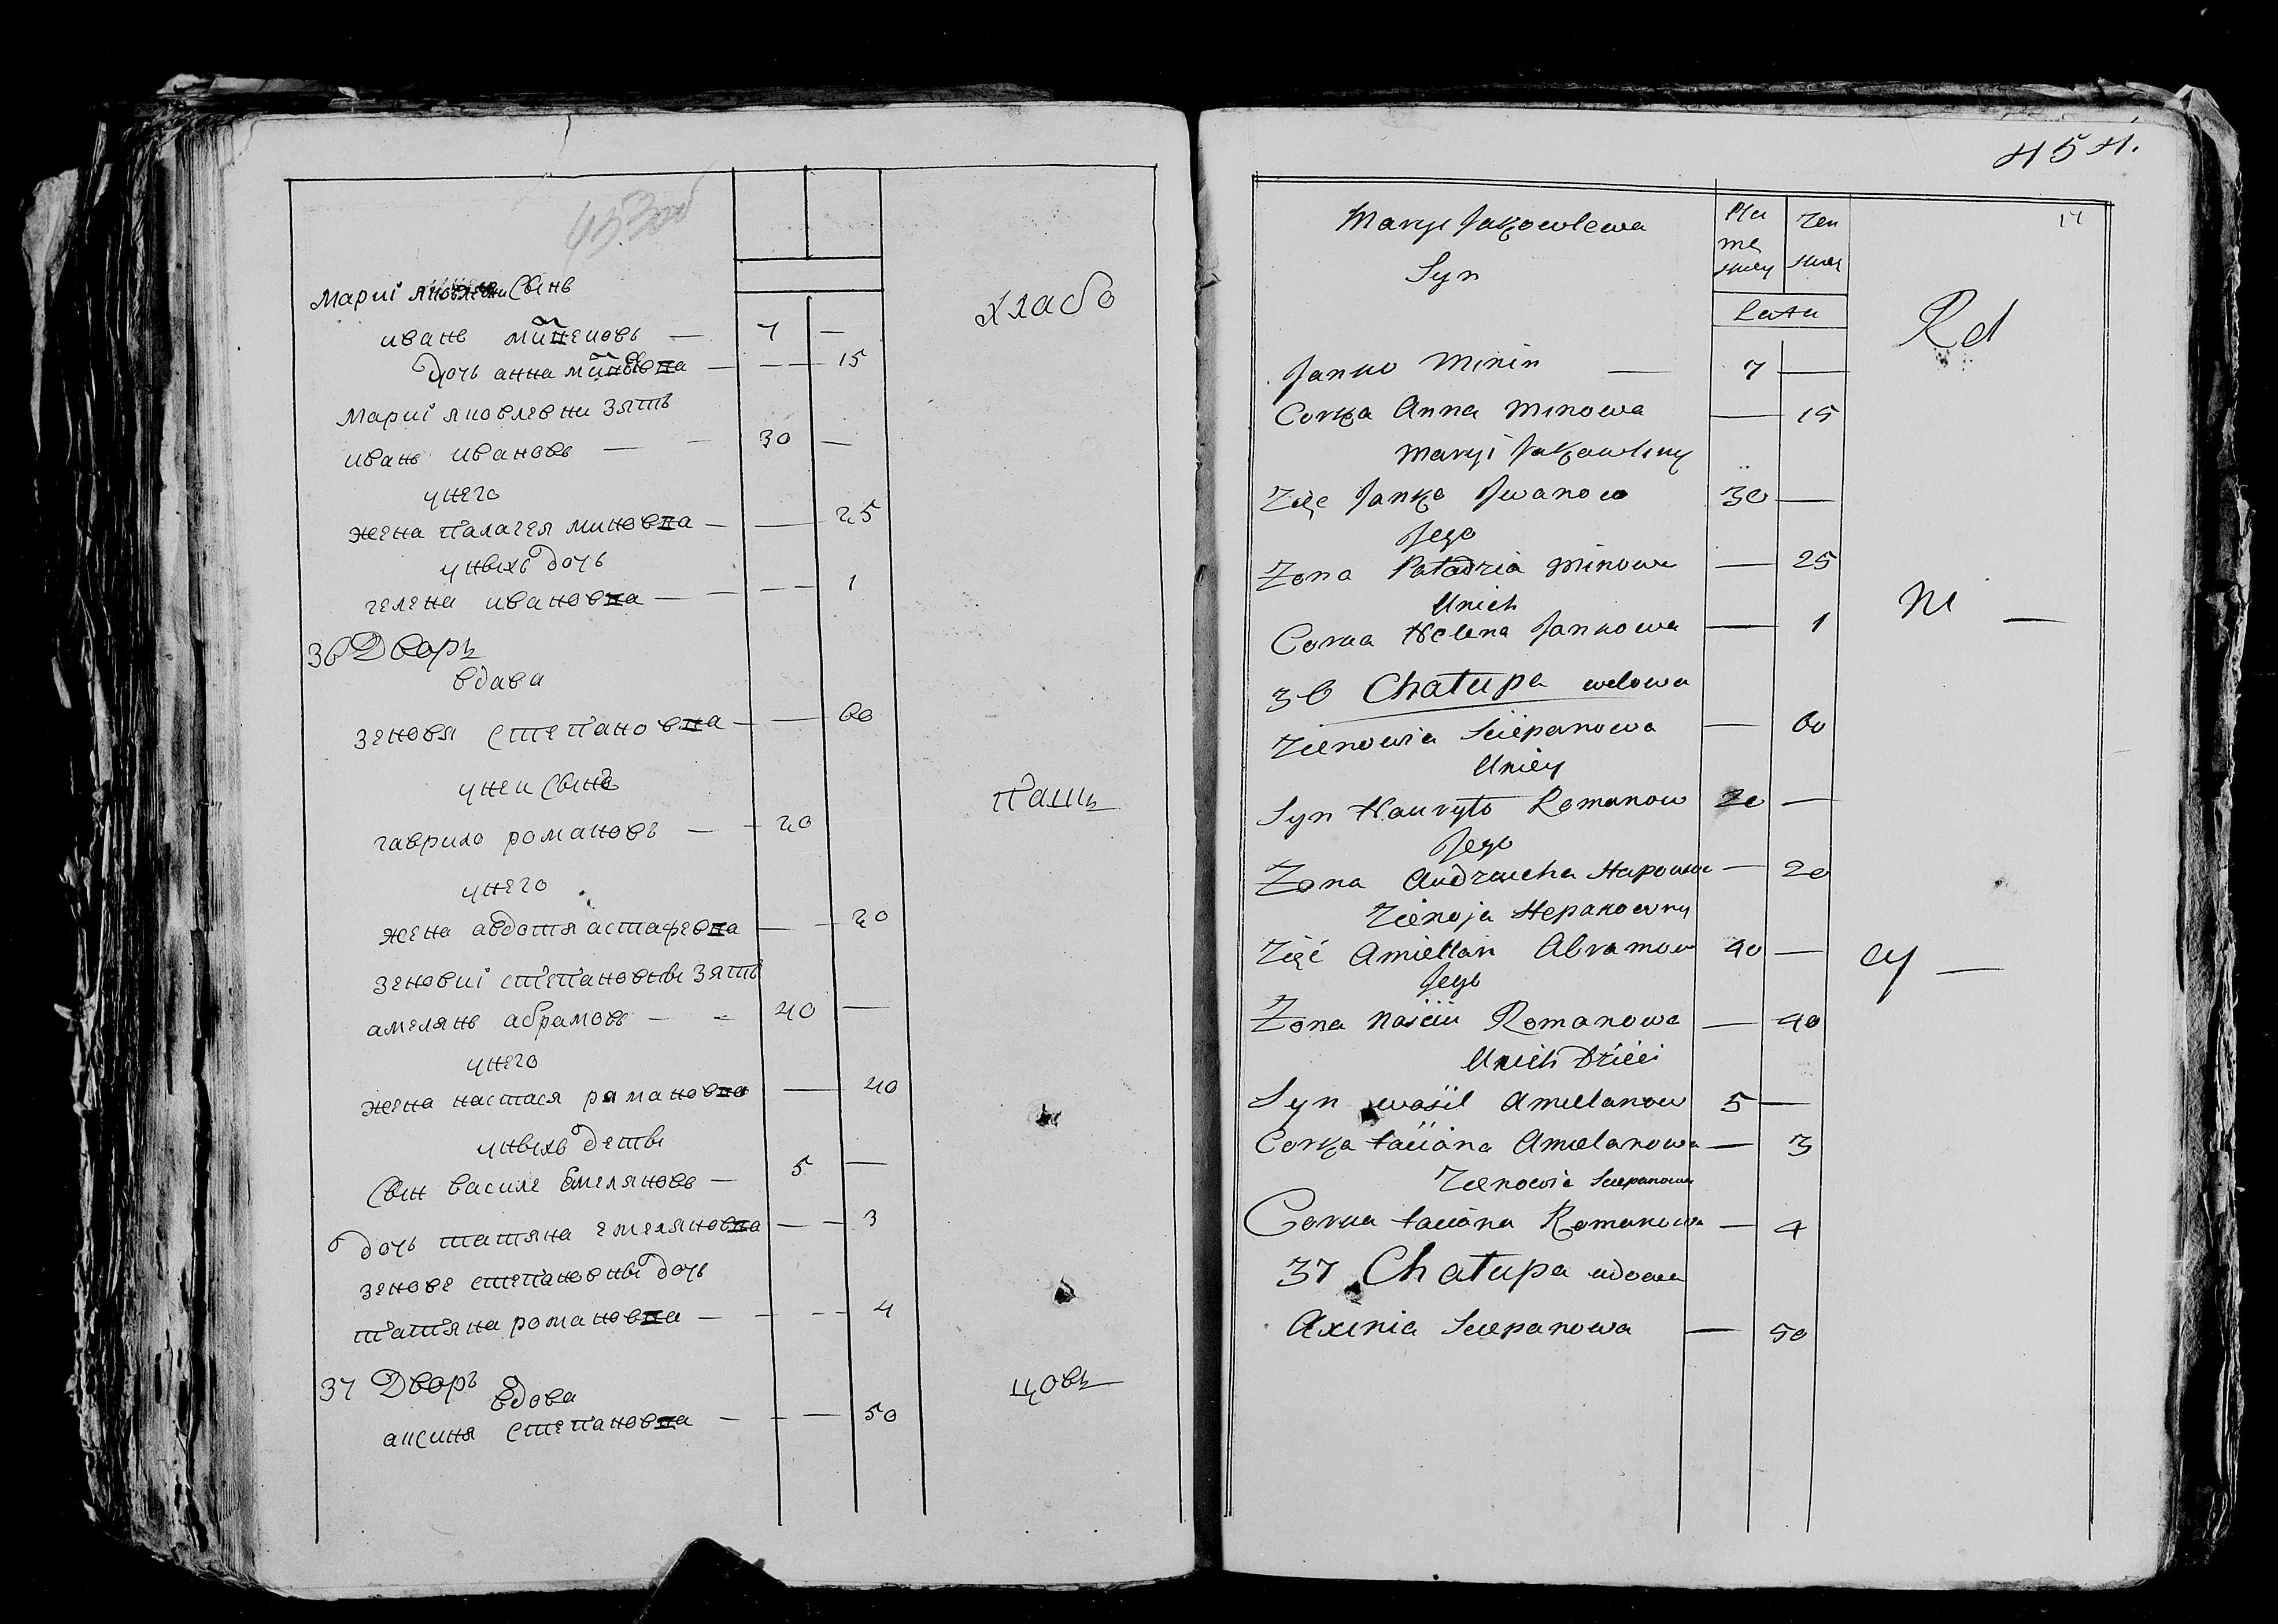 453 об
Марыі яковлевни Сынъ
иванъ миненовъ — 7 —
дочь анна миновна — — 15
Марыі яковлевни зять
иванъ ивановъ — — 30 —
унего
жена палагея миновна — — 25
унихъ дочь
гелена ивановна — — — 1
36 Дворъ
вдава
зеновя степановна — — 60
унеи Сынъ
гаврило романовъ — — 20
унего
жена авдотя астафевна — — 20
зеновиі степановны зять
амелянъ абрамовъ — — 40 —
унего
жена настася рамановна — 40
унихъ дети
Сын василе Емеляновъ — 5 —
дочь татяна емеляновна — — 3
зенове степановны дочь
татяна романовна — — — 4
37 Дворъ
вдова
аксиня степановна — — — 50
хлабо
пашь
цовъ
454.
17
Maryi Jakowlewa
Syn
Mę
skiey
Żen
skiey
Lata
Janko Minin — 7 —
Corka Anna Minowa — 15
Maryi Jakowlewny
Zięc Janko Iwanow 30 —
Jego
Zona Paładzia Minowa — 25
Unich
Corka Helena Jankowa — 1
36 Chałupa wdowa
Zienowia Sciepanowa — 60
Uniey
Syn Hauryło Romanow 20 —
Jego
Zona — 20
Zięć Amiellan Abramow 40 —
Jego
Zona Naścia Romanowa — 40
Unich Dzieci
Syn wasil Amielanow 5 —
Corka taciana Amielanowa — 3
Zienowia Sciepanowa
Corka taciana Romanowa — 4
37 Chałupa wdowa
Axinia Sciepanowa — 50